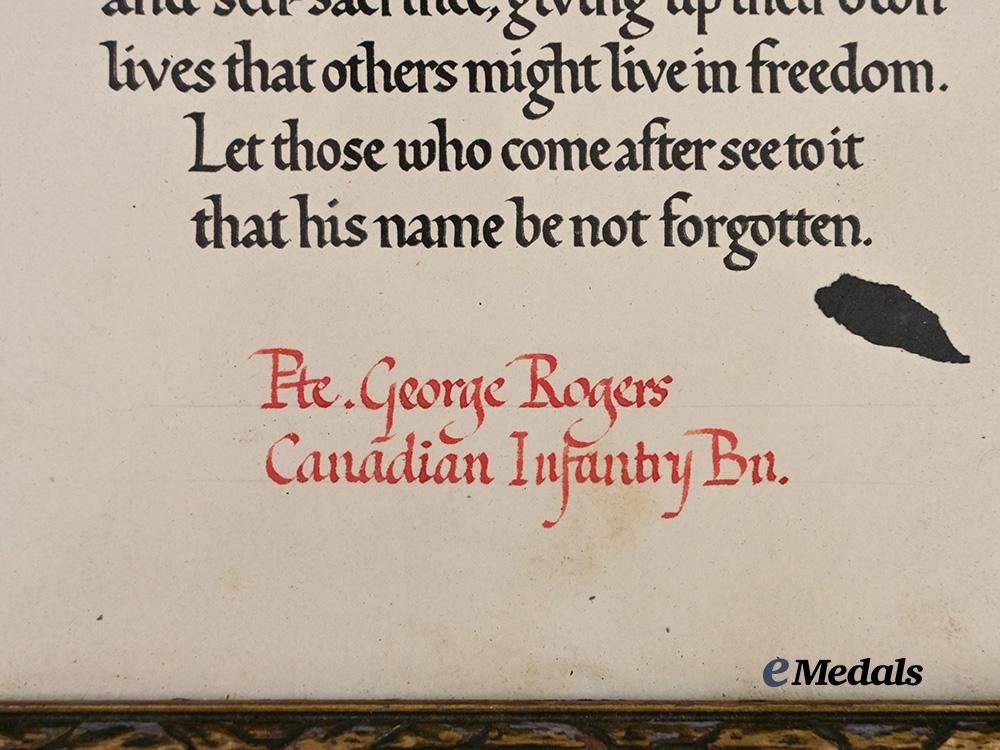 and self-sacrifice, giving up their own
lives that others might live in freedom.
Let those who come after see to it
that his name be not forgotten.
Pte. George Rogers
Canadian Infantry Bn.
eMedals